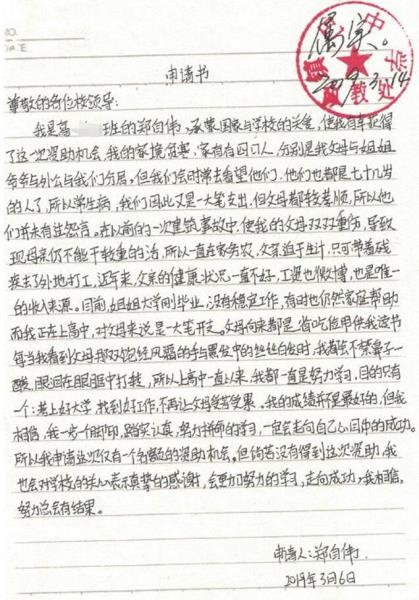 NO.
DATE
属实。
2019.3.14
中学
教处
申请书
尊敬的各位校领导:
我是高 班的郑自伟,承蒙国家与学校的关爱,使我有幸获得
了这一次资助机会,我的家境贫寒,家有四口人,分别是我父母与姐姐
爷爷与外公与我们分居。但我们会时常去看望他们,他们也都是七十几岁
的人了,所以常生病,我们因此又是一大笔支出,但父母都较孝顺,所以他
们并未有怨言。在以前的一次建筑事故中,使我的父母双双重伤,导致
现母亲仍不能干较重的活,所以一直在家务农,父亲迫于生计,只可带着残
疾去了外地打工,近年来,父亲的健康状况一直不好,工资也微博,也是唯一
的收入来源。目前,姐姐大学刚毕业,没有稳定工作,有时也仍然需家庭帮助
而我正在上高中,对父母来说是一大笔开支。父母向来都是省吃俭用供我读书
每当我看到父母那双饱经风霜的手与黑发中的丝丝白发时,我都会不禁鼻子一
酸,眼泪在眼眶中打转,所以上高中一直以来,我都一直是努力学习,目的只有
一个:考上好大学,找到好工作,不再让父母受苦受累。我的成绩虽不是最好的,但我
相信,我一步一个脚印,踏实认真,努力拼搏的学习,一定会走向自己心目中的成功。
所以我申请这次仅有一个名额的资助机会。但倘若没有得到这次资助,我
也会对学校的关心表示真挚的感谢,会更加努力的学习,走向成功,我相信,
努力总会有结果。
申请人:郑自伟.
2019年3月6日